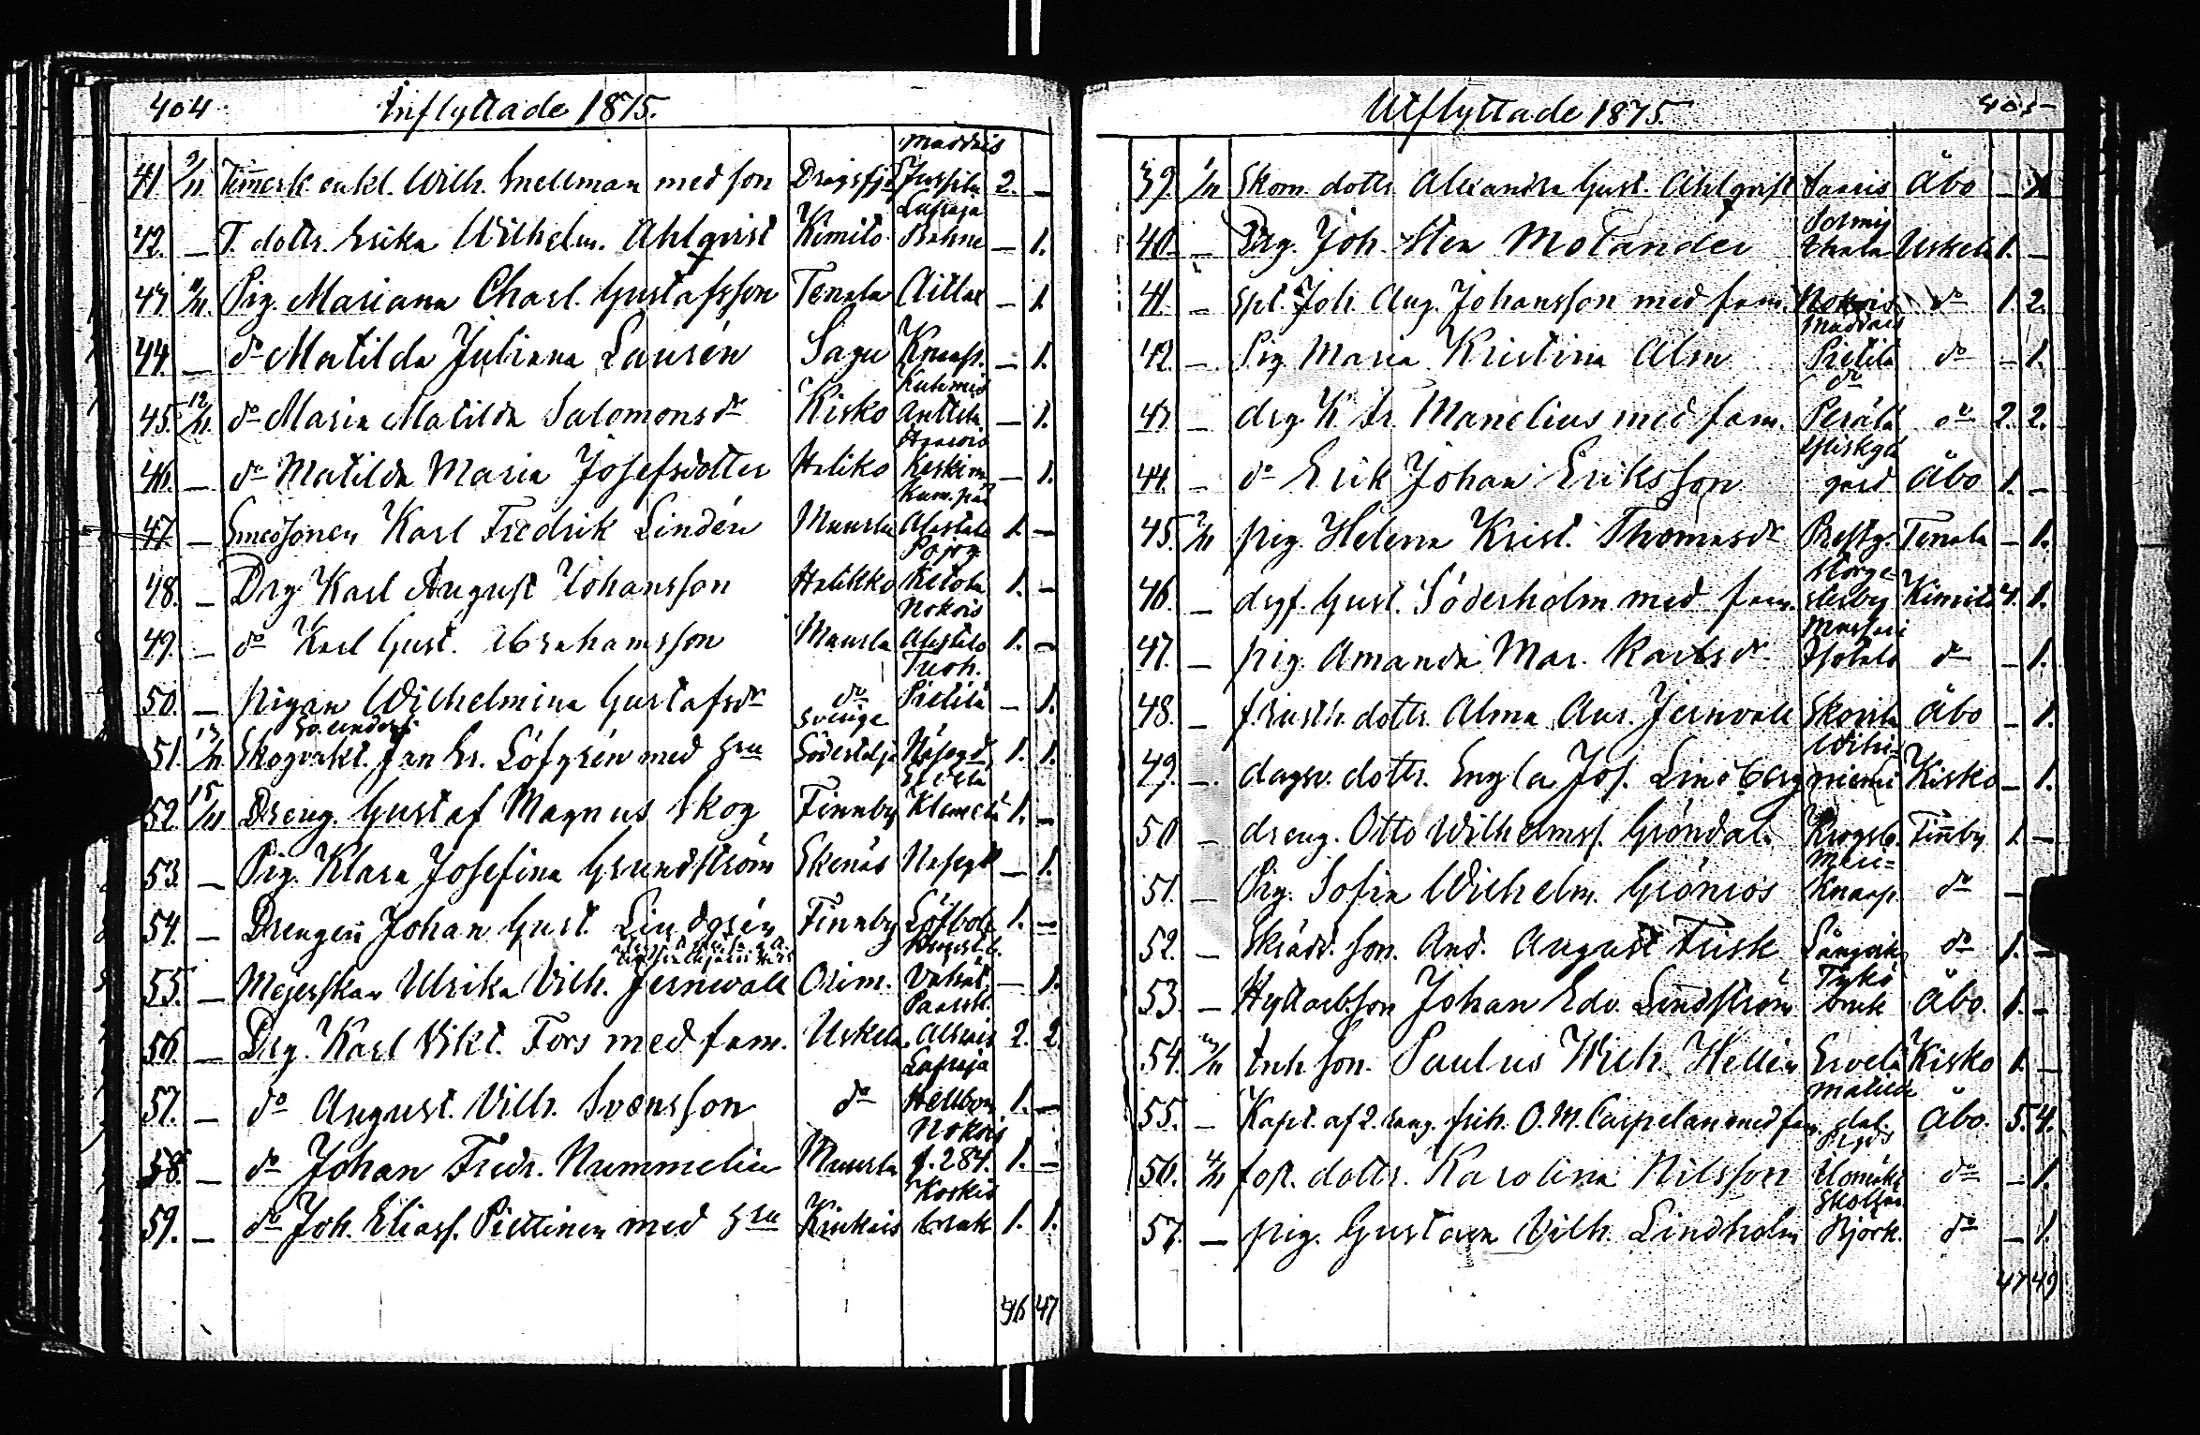 404 Inflyttade 1875.
41. 9/11. Timersk. enkl. Wilh. Snellman med son Dragsfj. Jussila 2. –
42. – T. dottr. Erika Wilhelm. Ahlqvist Kimito Böhne – 1.
43. 9/11. Pig. Mariana Charl. Gustafsson Tenala Aillax – 1.
44. – do Matilda Juliana Laurén Sagu Knaap. – 1.
45. 12/11. do Maria Matilda Salomonsdr Kisko Kukmis Anttila – 1.
46. – do Matilda Maria Josefsdotter Haliko Keskim – 1.
47. – Smedsonen Karl Fredrik Lindén Muurla Alastalo 1. –
48. – Drg. Karl August Johansson Halikko Ketola 1. –
49. – do Karl Gust. Abrahamsson Muurla Nokois Alastalo 1. –
50. – pigan Wilhelmina Gustafsdr do Tuoh. Pietilä – 1.
51. 13/11 Skogvakt. Jan Er. Löfgrén med hru Sverige Södertelje Näsegd. 1. 1.
52. 15/11 Dreng. Gustaf Magnus Skog Finnby Klemelä 1. –
53. – Pig. Klara Josefina Grundström Ekenäs Näsegd – 1.
54. – Drengen Johan Gust. Lindgrén Finnby Löfböle 1. –
55. – Mejerskan Ulrika Vilh. Jernvall Orim. – 1.
56. – Drg. Karl Vikt. Fors med fam. Uskela 2. 2.
57. – do August. Vilh. Svensson do Lapraja Hellbom 1. –
58. – do Johan Fredr. Nummelin Muurla Nokois f. 284. 1. –
59. – do Joh. Eliass. Piettinen med hru Kiukais Koskis bruk 1. 1.
46 47
Utflyttade 1875. 405
39. 1/11 Skom. dottr. Alexandra Gust. Ahlqvist Saaris Åbo –
40. – Drg. Joh. Sten Molander Uskela 1. –
41. – Spl. Joh. Aug. Johansson med fam. Nokois do 1. 2.
42. – Pig Maria Kristina Alm Maddais Pietilä do – 1.
43. – drg K. Fr. Manelius med fam. do Perälä do 2. 2.
44. – do Erik Johan Eriksson gård Åbo 1. –
45. 9/11 pig. Helena Krist. Thomasdr Prestg. Tenala – 1.
46. – drgf. Gust. Söderholm med fam. Kimito 4. 1.
47. – pig. Amanda Mar. Karlsdr Isotalo do – 1.
48. – f. rusth. dottr. Alma Aur. Jernvall Skoila Åbo – 1.
49. – dagsv. dottr. Engla Jos. Lindberg niemi Kisko – 1.
50 – dreng. Otto Wilhelmss. Gröndal. Krogsb. Finby 1. –
51. – Pig. Sofia Wilhelm. Grönros Knaap. do –
52. – Skrädd. son. And. August Frisk Långvik do 1. –
53. – Hyttarb. son Johan Edv. Lindström Tykö bruk Åbo. 1. –
54. Inh son. Paulus Wilh. Hellén Ervelä Kisko 1. –
55. – Kapt. af 2. rang. frih. O. M. Carpelan med fam. Matildedal. Åbo. 5. 4.
56. fost. dottr. Karolina Nilsson do – 1.
57. – pig. Gustava Vilh. Lindholm Björk. do – 1.
47 49